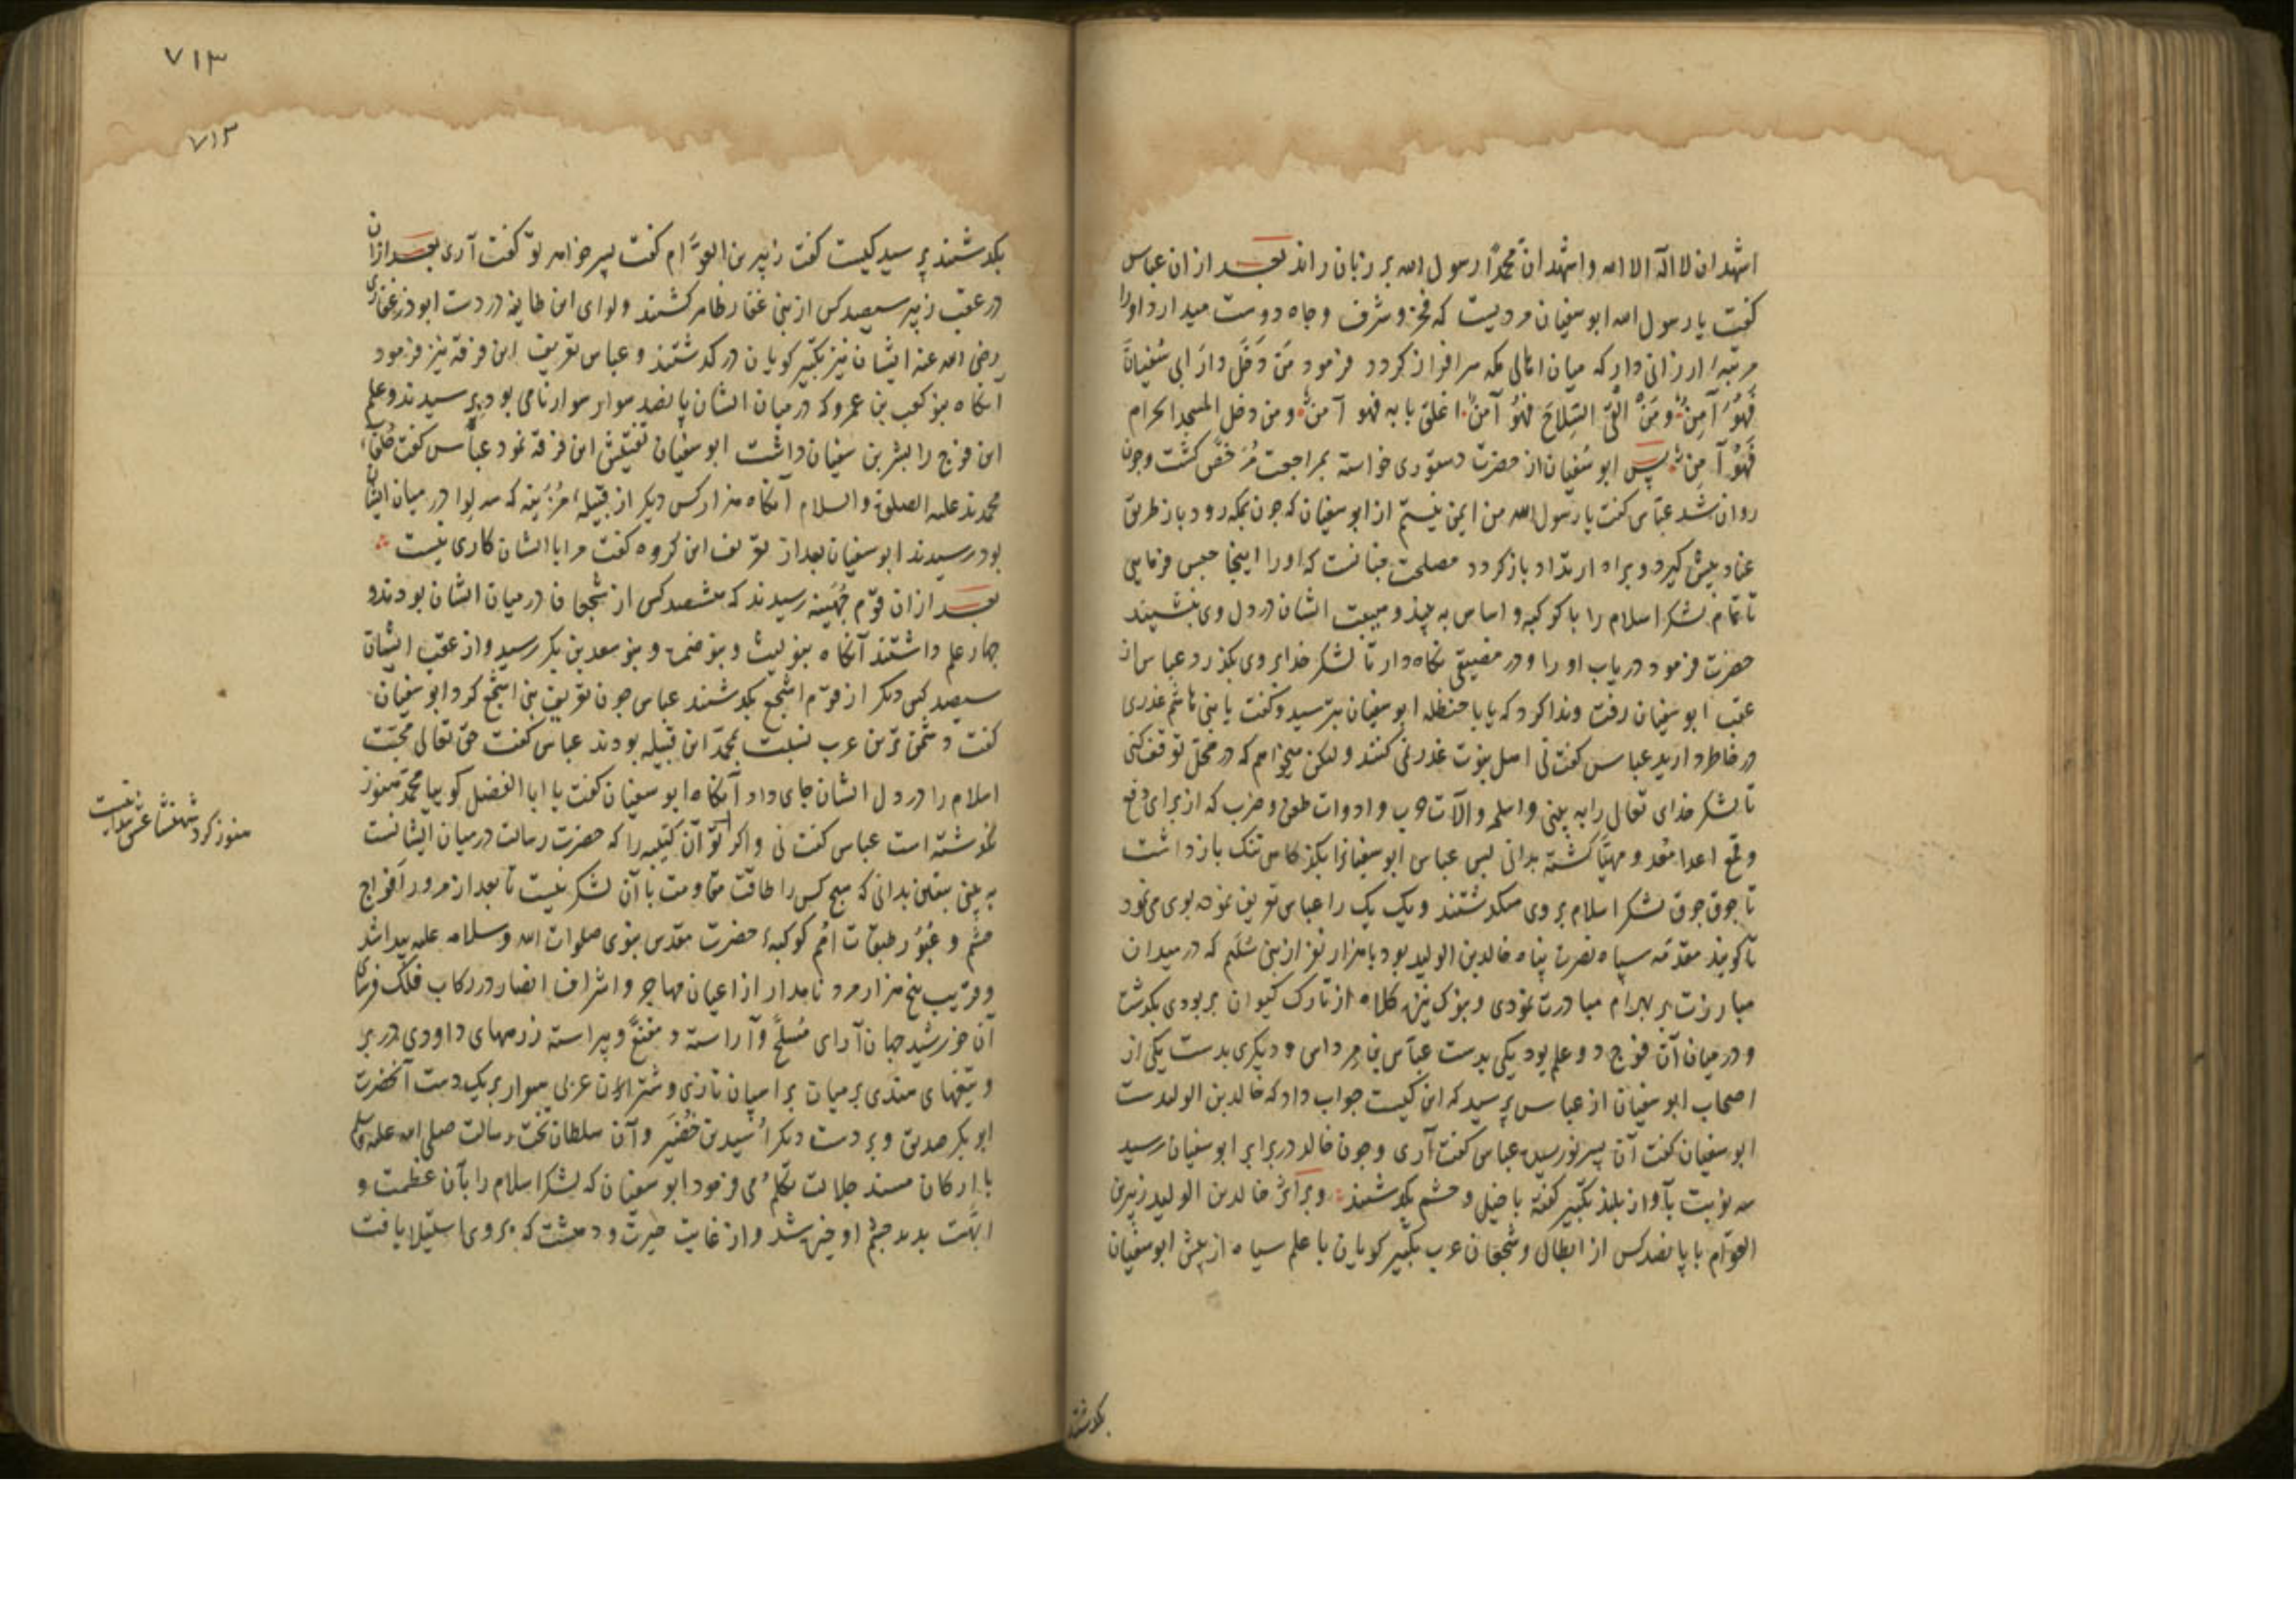 اشهد ان لا اله الا الله و اشهد ان محمدًا رسول الله بر زبان راند بعد از ان عباس
کفت یا رسول الله ابو سفیان مردیست که فخر و شرف و جاه دوست میدارد او را
مرتبهٔ ارزانی دار که میان اهالی مکه سرافراز کردد فرمود مَن دَخَلَ دارَ ابی سُفیانَ
فَهُوَ آمِنٌ ومَنْ الْقی السِّلاحَ فَهُوَ آمنٌ اغلق بابه فهو آمنٌ ومن دخل المسجد الحرام
فَهُوَ آمِنٌ پس ابو سُفیان از حضرت دستوری خواسته بمراجعت مُرَخَّص کشت وچون
روان شد عبّاس کفت یا رسول الله من ایمن نیستم از ابو سفیان که چون بمکه رود باز طریق
عناد پیش کیرد و براه ارتداد باز کردد مصلحت چنانست که او را اینجا حبس فرمایی
تا تمام لشکر اسلام را با کوکبه و اساس به بیند و هیبت ایشان در دل وی بنشیند
حضرت فرمود دریاب او را و در مضیقی نکاه دار تا لشکر خدا بر وی بکذرد عباس از
عقب ابو سفیان رفت و ندا کرد که یا با حنظله ابو سفیان بترسید و کفت یا بنی هاشم غدری
در خاطر دارید عباس کفت نی اهل نبوّت غدر نمی کنند ولیکن میخواهم که در محلّ توقف کنی
تا لشکر خدای تعالی را به بینی و اسلحه و آلات حرب و ادوات طعن و ضرب که از برای دفع
و قمع اعدا مُعد و مهیّا کشته بدانی پس عباس ابو سفیانرا بکذرکاهی تنک بازداشت
تا جوق جوق لشکر اسلام بر وی میکذشتند و یک یک را عباس تعریف نموده بوی می نمود
تا کویند مقدّمه سپاه نصرت پناه خالد بن الولید بود با هزار نفر از بنی سُلَیم که در میدان
مبارزت بر بهرام مبادرت نمودی و بنوک نیزه کلاه از تارک کیوان بربودی بکذشت
و در میان آن فوج دو علم بود یکی بدست عبّاس بن مرداس و دیکری بدست یکی از
اصحاب ابو سفیان از عباس پرسید که این کیست جواب داد که خالد بن الولیدست
ابو سفیان کفت آن پسر نورسیده عباس کفت آری وچون خالد در برابر ابو سفیان رسید
سه نوبت بآواز بلند تکبیر کفته با خیل و حشم بکذشتند و بر اثر خالد بن الولید زبیر بن
العوّام با پانصد کس از ابطال و شجعان عرب تکبیر کویان با علم سیاه از پیش ابو سفیان
بکذشتند
٧١٣
٧١٣
بکذشتند پرسید کیست کفت زبیر بن العوّام کفت پسر خواهر تو کفت آری بعد ازان
در عقب زبیر سیصد کس از بنی غفار ظاهر کشتند و لوای این طایفه در دست ابوذر غفاری
رضی الله عنه ایشان نیز تکبیر کویان درکذشتند و عباس تعریف این فرقه نیز فرمود
آنکاه بنو کعب بن عمرو که در میان ایشان پانصد سوار نامی بود در رسیدند و علم
این فوج را بشر بن سفیان داشت ابو سفیان تفتیش این فرقه نمود عبّاس کفت حُلَفاءِ
محمدند علیه الصلوة والسلام آنکاه هزار کس دیکر از قبیلهٔ مُزَیْنه که سه لوا در میان ایشان
بود رسیدند ابو سفیان بعد از تعریف این کروه کفت مرا با ایشان کاری نیست
بعد ازان قوم جُهَینه رسیدند که هشتصد کس از شجعان در میان ایشان بودند و
چهار علم داشتند آنکاه بنو لیث و بنو ضمره و بنو سعد بن بکر رسید و از عقب ایشان
سیصد کس دیکر از قوم اشجع بکذشتند عباس چون تعریف بنی اشجع کرد ابو سفیان
کفت دشمن ترین عرب نسبت بمحمّد این قبیله بودند عباس کفت حق تعالی محبّت
اسلام را در دل ایشان جای داد آنکاه ابو سفیان کفت یا ابا الفضل کوییا محمّد هنوز
نکذشته است عباس کفت نی و اکر تو آن کتیبه را که حضرت رسالت در میان ایشانست
به بینی بیقین بدانی که هیچ کس را طاقت مقاومت با آن لشکر نیست تا بعد از مرور افواج
حشم و عُبُور طبقات اُمَم کوکبهٔ حضرت مقدّس نبوی صلوات الله و سلامه علیه پیدا شد
و قریب پنج هزار مرد نامدار از اعیان مهاجر و اشراف انصار در رکاب فلک فرسای
آن خورشید جهان آرای مُسلّح و آراسته و مقنّع و پیراسته زرههای داودی در بر
و تیغهای هندی بر میان بر اسپان تازی و شتران عربی سوار بر یک دست آنحضرت
ابو بکر صدیق و بر دست دیکر اُسید بن حُضَیر و آن سلطان تخت رسالت صلی الله علیه وسلم
با ارکان مسند جلالت تکلّم می فرمود ابو سفیان که لشکر اسلام را بآن عظمت و
ابّهت بدید چشم او خیره شد و از غایت حیرت و دهشت که بر وی استیلا یافت
هنوز کرد شهنشاه